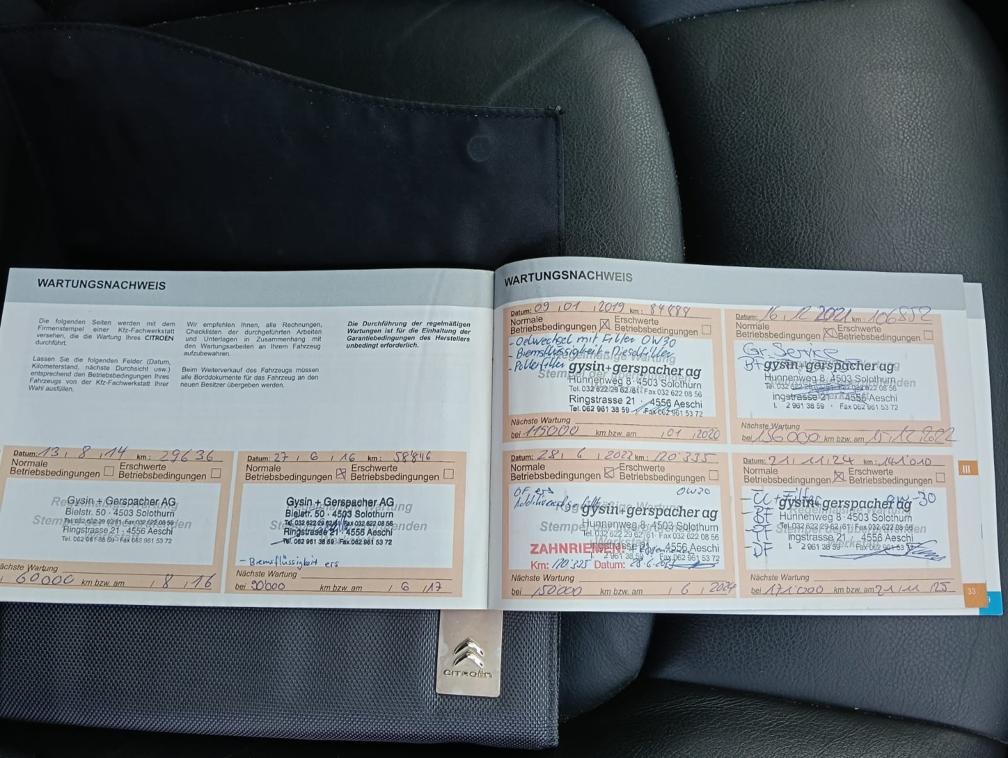 WARTUNGSNACHWEIS
Die folgenden Seiten werden mit dem
Firmenstempel einer Kfz-Fachwerkstatt
versehen, die die Wartung Ihres CITROËN
durchführt.
Lassen Sie folgende Felder (Datum,
Kilometerstand, nächste Durchsicht usw.)
entsprechend den Betriebsbedingungen Ihres
Fahrzeugs von der Kfz-Fachwerkstatt Ihrer
Wahl ausfüllen.
Wir empfehlen Ihnen, alle Rechnungen,
Checklisten der durchgeführten Arbeiten
und Unterlagen in Zusammenhang mit
den Wartungsarbeiten an Ihrem Fahrzeug
aufzubewahren.
Beim Weiterverkauf des Fahrzeugs müssen
alle Borddokumente für das Fahrzeug an den
neuen Besitzer übergeben werden.
Die Durchführung der regelmäßigen
Wartungen ist für die Einhaltung der
Garantiebedingungen des Herstellers
unbedingt erforderlich.
Datum: 13, 8, 14 km: 29636
Normale Erschwerte
Betriebsbedingungen Betriebsbedingungen
Gysin + Gerspacher AG
Bielstr. 50 · 4503 Solothurn
Tel. 032 622 29 62/61 Fax 032 622 08 56
Ringstrasse 21 · 4556 Aeschi
Tel. 062 961 38 59 · Fax 062 961 53 72
Nächste Wartung
60000 km bzw. am , 8, 16
Datum: 27, 6, 16 km: 58846
Normale Erschwerte
Betriebsbedingungen Betriebsbedingungen
Gysin + Gerspacher AG
Bielstr. 50 · 4503 Solothurn
Tel. 032 622 29 62/61 Fax 032 622 08 56
Ringstrasse 21 · 4556 Aeschi
Tel. 062 961 38 59 · Fax 062 961 53 72
- Bremsflüssigkeit ers
Nächste Wartung
bei 90000 km bzw. am , 6, 17
WARTUNGSNACHWEIS
Datum: 09, 01, 2019 km: 84889
Normale Erschwerte
Betriebsbedingungen Betriebsbedingungen
- Oelwechsel mit Filter 0W30
- Bremsflüssigkeit - Dieselfilter
- Pollenfilter
gysin+gerspacher ag
Hunnenweg 8 · 4503 Solothurn
Tel. 032 622 29 62 /61 · Fax 032 622 08 56
Ringstrasse 21 · 4556 Aeschi
Tel. 062 961 38 59 · Fax 062 961 53 72
Nächste Wartung
bei 115000 km bzw. am , 01, 2020
Datum: 16, 12, 2021 km: 106852
Normale Erschwerte
Betriebsbedingungen Betriebsbedingungen
Gr. Service
gysin+gerspacher ag
Hunnenweg 8 · 4503 Solothurn
Tel. 032 622 29 62 /61 · Fax 032 622 08 56
ingstrasse 21 · 4556 Aeschi
2 961 38 59 · Fax 062 961 53 72
Nächste Wartung
bei 136000 km bzw. am 15, 12, 2022
Datum: 28, 6, 2022 km: 120335
Normale Erschwerte
Betriebsbedingungen Betriebsbedingungen
0W30
gysin+gerspacher ag
Hunnenweg 8 · 4503 Solothurn
Tel. 032 622 29 62 /61 · Fax 032 622 08 56
4556 Aeschi
2 961 38 59 · Fax 062 961 53 72
ZAHNRIEMEN
Km: Datum:
Nächste Wartung
bei 150000 km bzw. am , 6, 2024
Datum: 21, 11, 24 km: 141010
Normale Erschwerte
Betriebsbedingungen Betriebsbedingungen
gysin+gerspacher ag
Hunnenweg 8 · 4503 Solothurn
Tel. 032 622 29 62 /61 · Fax 032 622 08 56
ingstrasse 21 · 4556 Aeschi
2 961 38 59 · Fax 062 961 53 72
Nächste Wartung
bei 171000 km bzw. am 21, 11, 25
III
33
CITROËN